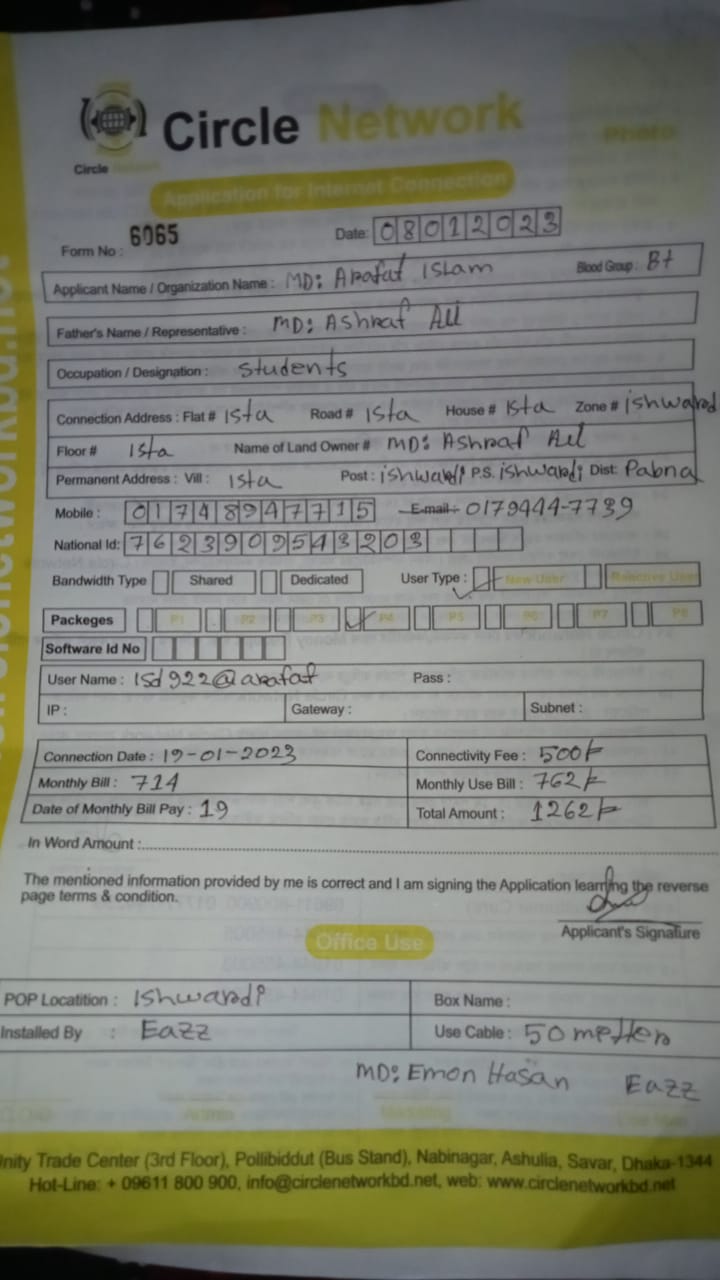 Circle Network
Circle Network
Photo
Application for Internet Connection
Form No : 6065 Date: 08012023
Applicant Name / Organization Name : MD: Arafat Islam Blood Group : B+
Father's Name / Representative : MD: Ashraf Ali
Occupation / Designation : students
Connection Address : Flat # Ista Road # Ista House # Ista Zone # ishwardi
Floor # Ista Name of Land Owner # MD: Ashraf Ali
Permanent Address : Vill : Ista Post : ishwardi P.S. ishwardi Dist: Pabna
Mobile : 01748947715 E-mail : 0179444-7739
National Id: 7623909543203
Bandwidth Type Shared Dedicated User Type : New User Reactive User
Packeges P1 P2 P3 P4 P5 P6 P7 P8
Software Id No
User Name : isd922@arafat Pass :
IP : Gateway : Subnet :
Connection Date : 19-01-2023 Connectivity Fee : 500/=
Monthly Bill : 714 Monthly Use Bill : 762/=
Date of Monthly Bill Pay : 19 Total Amount : 1262/=
In Word Amount :
The mentioned information provided by me is correct and I am signing the Application learning the reverse
page terms & condition.
Applicant's Signature
Office Use
POP Locatition : Ishwardi Box Name :
Installed By : Eazz Use Cable : 50 metter
MD: Emon Hasan Eazz
Admin Marketing
nity Trade Center (3rd Floor), Pollibiddut (Bus Stand), Nabinagar, Ashulia, Savar, Dhaka-1344
Hot-Line: + 09611 800 900, info@circlenetworkbd.net, web: www.circlenetworkbd.net